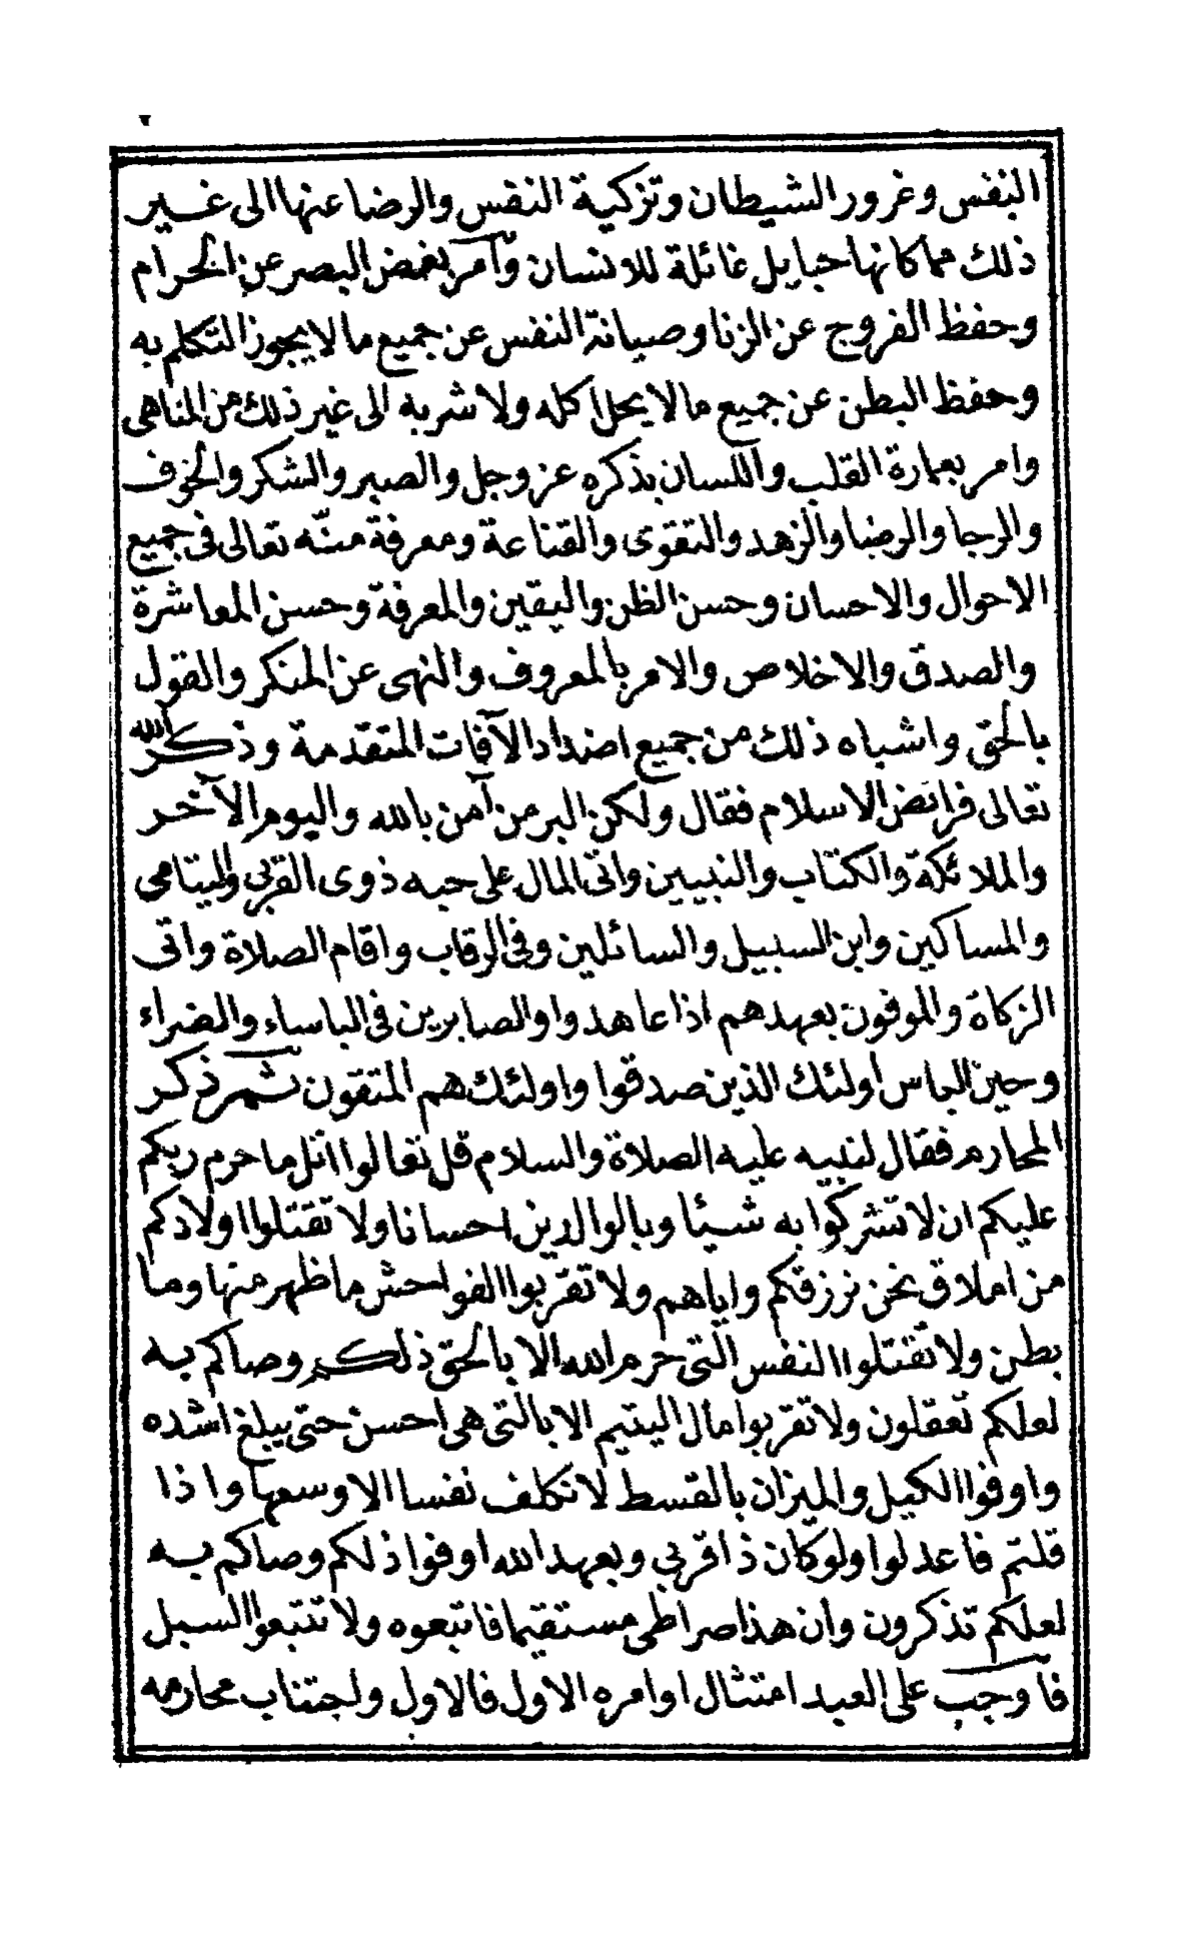 النفس وغرور الشيطان وتزكية النفس والرضا عنها الى غير
ذلك مما كانها حبايل غائلة للانسان وآمر بغمض البصر عن الحرام
وحفظ الفروج عن الزنا وصيانة النفس عن جميع ما لا يجوز التكلم به
وحفظ البطن عن جميع ما لا يحل اكله ولا شربه الى غير ذلك من المناهى
وامر بعمارة القلب واللسان بذكره عز وجل والصبر والشكر والخوف
والرجا والرضا والزهد والتقوى والقناعة ومعرفة منّه تعالى فى جميع
الاحوال والاحسان وحسن الظن واليقين والمعرفة وحسن المعاشرة
والصدق والاخلاص والامر بالمعروف والنهى عن المنكر والقول
بالحق واشباه ذلك من جميع اضداد الآفات المتقدمة وذكر الله
تعالى فرائض الاسلام فقال ولكن البر من آمن بالله واليوم الآخر
والملائكة والكتاب والنبيين واتى المال على حبه ذوى القربى واليتامى
والمساكين وابن السبيل والسائلين وفى الرقاب واقام الصلاة واتى
الزكاة والموفون بعهدهم اذا عاهدوا والصابرين فى الباساء والضراء
وحين الباس اولئك الذين صدقوا واولئك هم المتقون ثم ذكر
المحارم فقال لنبيه عليه الصلاة والسلام قل تعالوا اتل ما حرم ربكم
عليكم ان لا تشركوا به شيئا وبالوالدين احسانا ولا تقتلوا اولادكم
من املاق نحن نرزقكم واياهم ولا تقربوا الفواحش ما ظهر منها وما
بطن ولا تقتلوا النفس التى حرم الله الا بالحق ذلكم وصاكم به
لعلكم تعقلون ولا تقربوا مال اليتيم الا بالتى هى احسن حتى يبلغ اشده
واوفوا الكيل والميزان بالقسط لا نكلف نفسا الا وسعها واذا
قلتم فاعدلوا ولو كان ذا قربى وبعهد الله اوفوا ذلكم وصاكم به
لعلكم تذكرون وان هذا صراطى مستقيما فاتبعوه ولا تتبعوا السبل
فاوجب على العبد امتثال اوامره الاول فالاول واجتناب محارمه